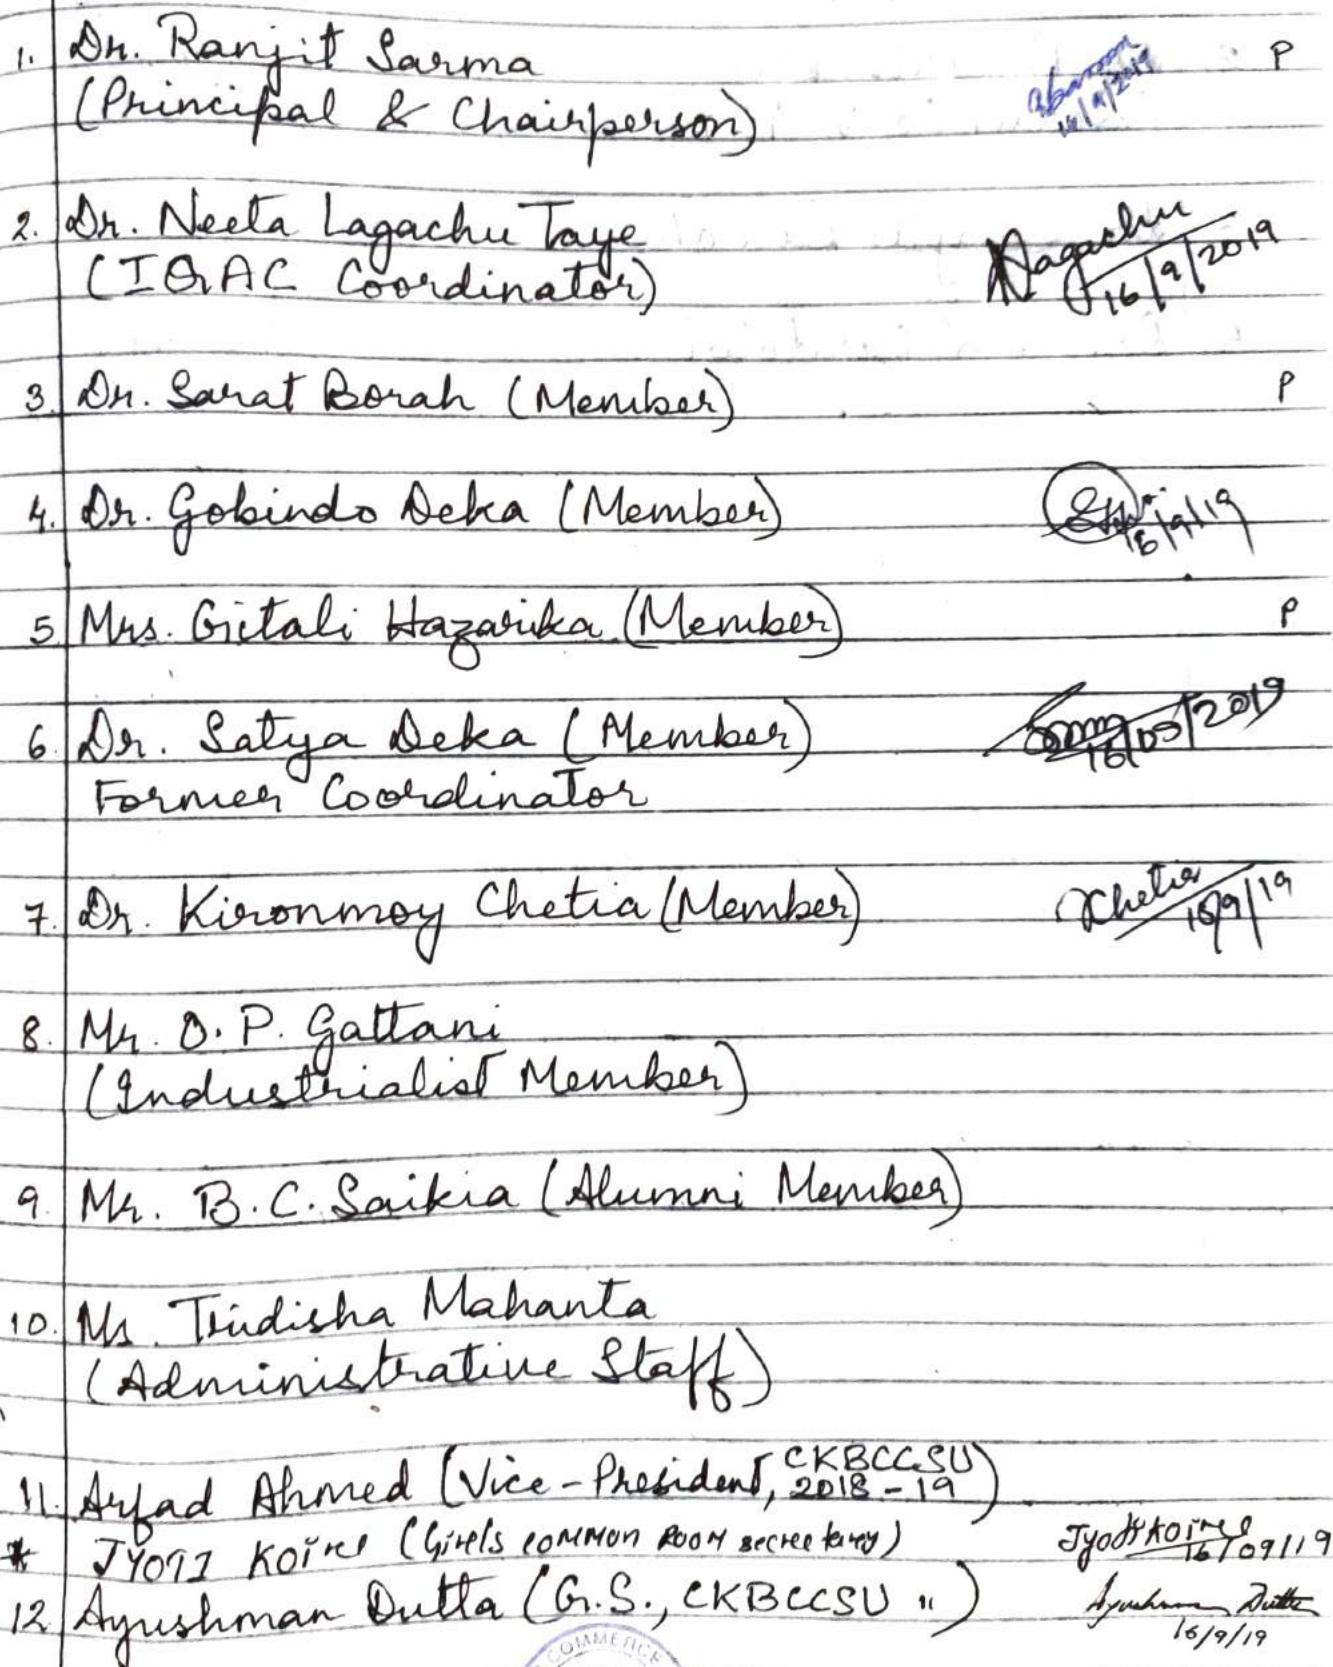 1. Dr. Ranjit Sarma P
(Principal & Chairperson)
16/9/2019
2. Dr. Neeta Lagachu Taye Nagachu
(IQAC Coordinator) 16/9/2019
3. Dr. Sarat Borah (Member) P
4. Dr. Gobindo Deka (Member)
16/9/19
5. Mrs. Gitali Hazarika (Member) P
6. Dr. Satya Deka (Member) 16/09/2019
Former Coordinator
7. Dr. Kironmoy Chetia (Member) Chetia
16/9/19
8. Mr. O. P. Gattani
(Industrialist Member)
9. Mr. B. C. Saikia (Alumni Member)
10. Ms. Tridisha Mahanta
(Administrative Staff)
11. Arfad Ahmed (Vice-President, CKBCCSU
2018-19)
* JYOTI KOIRI (Girls COMMON ROOM secretary) Jyoti KOIRI
16/09/19
12 Ayushman Dutta (G.S., CKBCCSU ") Ayushman Dutta
16/9/19
COMMERCE